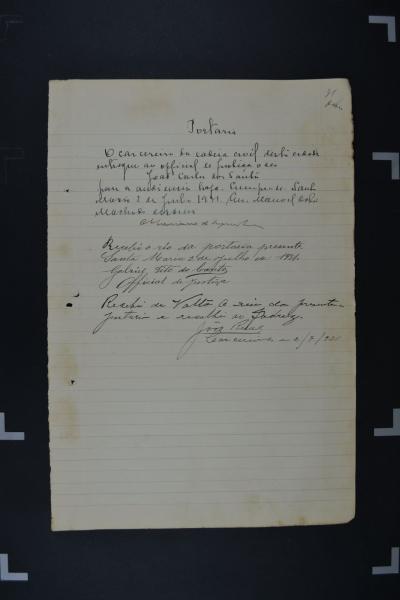 31
Portaria
O carcereiro da cadeia civil desta cidade
entregue ao official de justiça o réo
José Carlos dos Santos
para a audiencia hoje. Cumpra-se. Santa
Maria 2 de Julho 1921. Eu, Manoel
Machado escrivão
Recebi o réo da portaria presente
Santa Maria 2 de Julho de 1921.
Gabriel dos Santos
Official de Justiça
Recebi de Volta o réu da presente
portaria e recolhi ao Xadrez.
João
Carcereiro 2/7/921